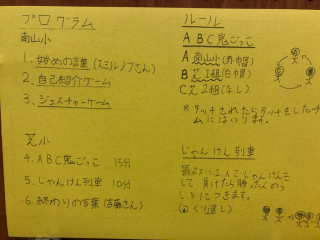 プログラム
南山小
1. 始めの言葉 (スミルノフさん)
2. 自己紹介ゲーム
3. ジェスチャーゲーム
芝小
4. ABC鬼ごっこ 15分
5. じゃんけん列車 10分
6. 終わりの言葉 (古藤さん)
ルール
ABC鬼ごっこ
A 南山小 (赤帽)
B 芝1組 (白帽)
C 芝2組 (なし)
※タッチされたらタッチをしたチー
ムにはいります。
じゃんけん列車
最初に2人でじゃんけんを
して、負けたら勝った人のう
しろにつきます。
くり返し